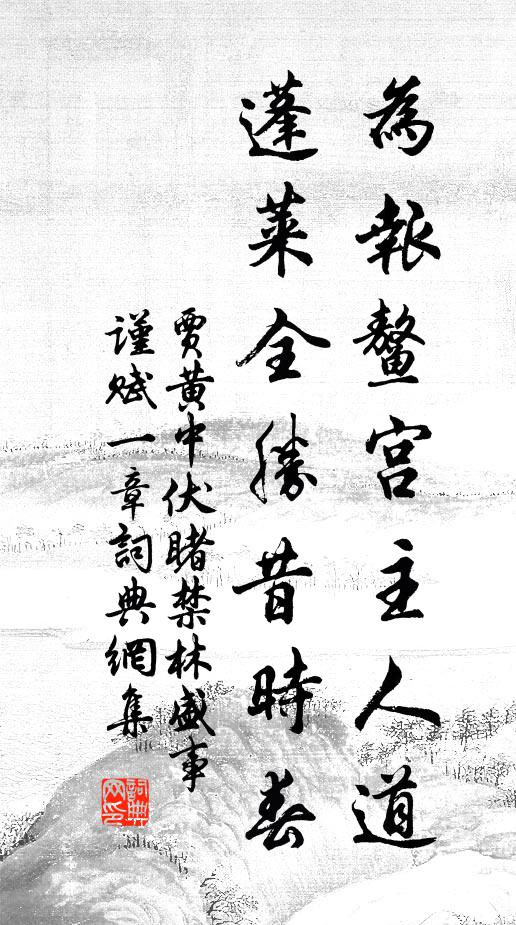 為報鰲宮主人道
蓬萊全勝昔時春
賈黃中伏睹禁林盛事
謹賦一章詞典網集
詞典網印